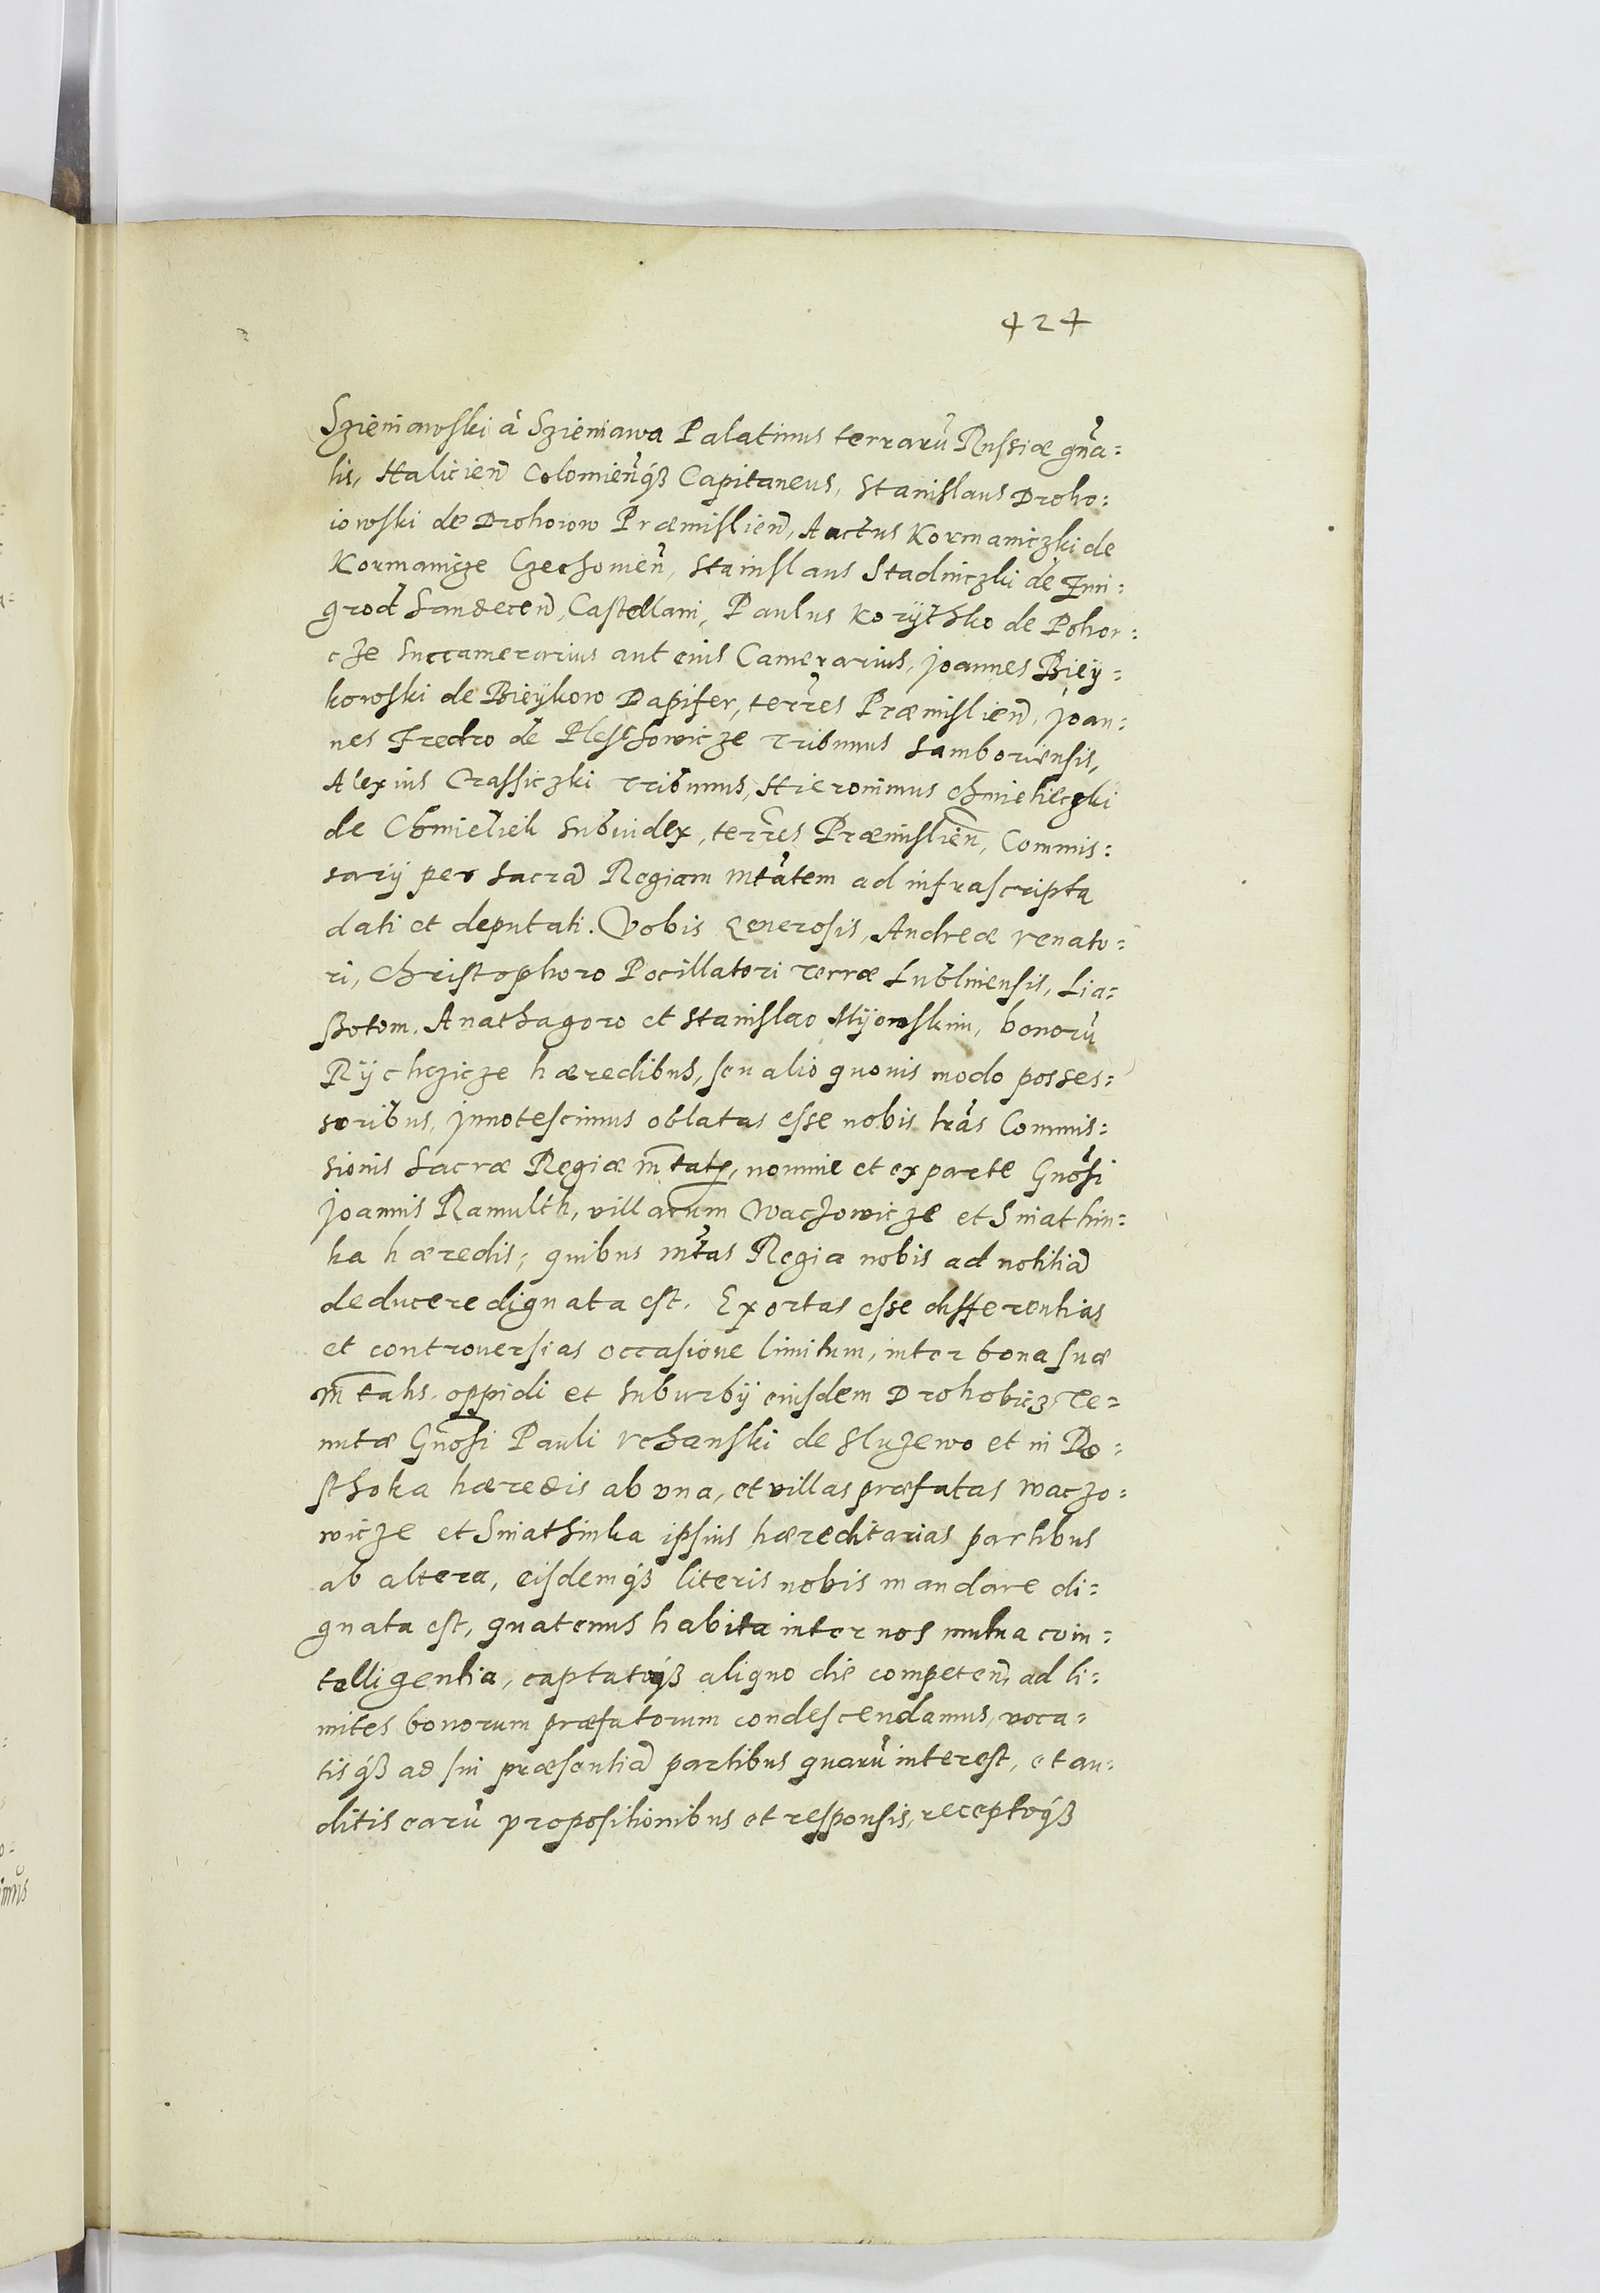 424
Szieniawski à Szieniawa Palatinus terrarū Russiæ gn̄a=
lis, Halicień Colomień́qß Capitaneus, Stanislaus Droho=
iowski de Drohoiow Præmislień, Auctus Kormaniczki de
Kormanicze Czechomień, Stanislaus Stadniczki de Zmi=
grod Sandecen̄, Castellani, Paulus Korÿthko de Pohor=
cze Succamerarius aut eius Camerarius, Joannes Bieÿ=
kowski de Bieÿkow Dapifer, terr̄es Præmislien̄, Joan=
nes Fredro de Plesshowicze Tribunus Samboriensis,
Alexius Crassiczki Tribunus, Hieronimus Chmielieczki
de Chmieliek Subiudex, terr̄es Præmislien̄, Commis=
sarij per Sacrā Regiam Mt̄atem ad infrascripta
dati et deputati. Vobis Generosis, Andreæ Venato=
ri, Christophoro Pocillatori Terræ Lublinensis, Lia=
ssotom, Anathagoro et Stanislao Mÿowskim, bonorū
Rÿchczicze hæredibus, seu alio quouis modo posses=
soribus, Innotescimus oblatas esse nobis lr̄as Commis=
sionis Sacræ Regiæ Mt̄atis, nomine et ex parte Gnōsi
Joannis Ramulth, villarum Waczowicze et Sniathin=
ka hæredis, quibus Mt̄as Regia nobis ad notitiā
deducere dignata est. Exortas esse differentias
et controuersias occasione limitum, inter bona suæ
Mt̄atis, oppidi et Suburbij eiusdem Drohobicz, Te=
nutæ Gnōsi Pauli Vchanski de Sluzewo et in Ro=
sthoka hæredis ab vna, et villas præfatas Waczo=
wicze et Sniathinka ipsius hæreditarias partibus
ab altera, eisdemqß literis nobis mandare di=
gnata est, quatenus habita inter nos mutua coin=
telligentia, captatoqß aliquo die competen̄, ad li=
mites bonorum præfatorum condescendamus, voca=
tisqß ad sui præsentiā partibus quarū interest, et au=
ditis earū propositionibus et responsis, receptoqß